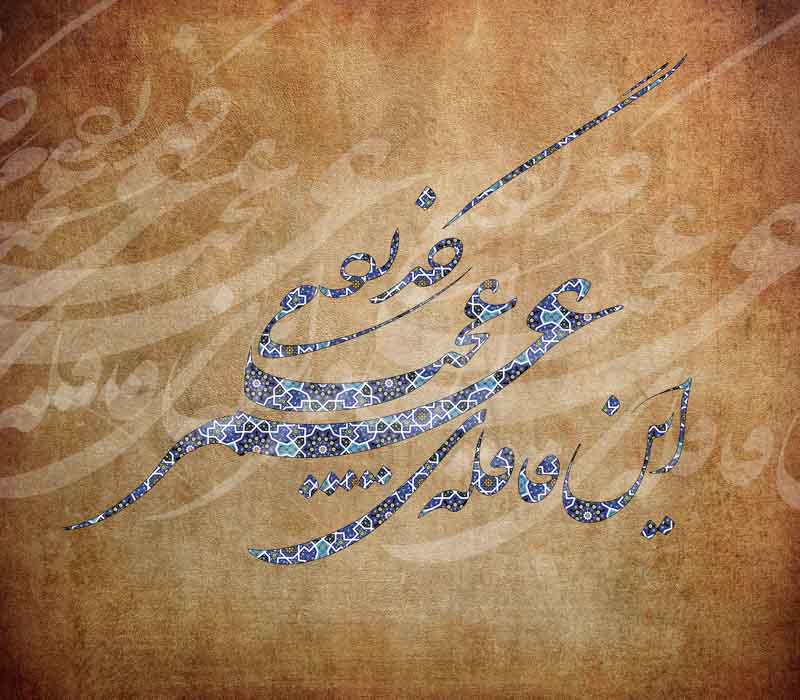 این قافله ی عمر عجب میگذرد